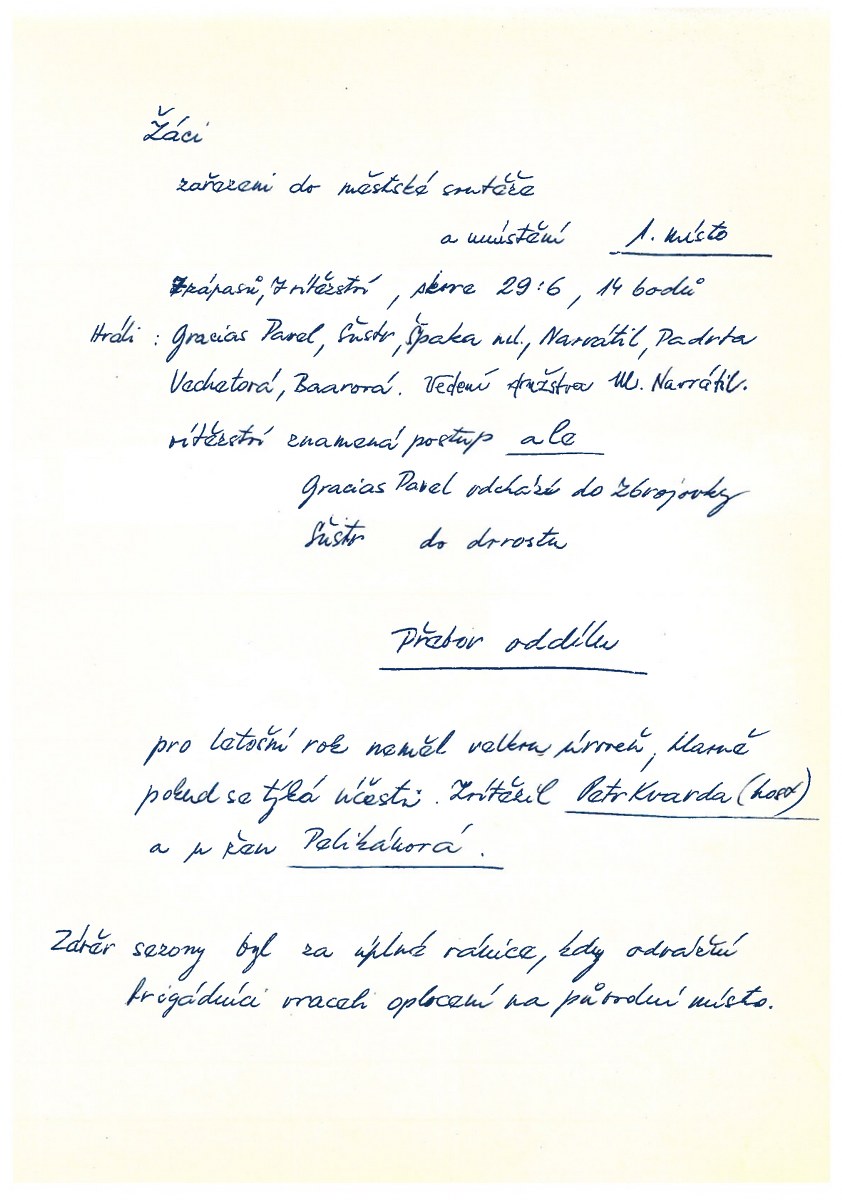 Žáci
zařazeni do městské soutěže
a umístění 1. místo
7 zápasů, 7 vítězství, skore 29:6, 14 bodů
Hráli: Gracias Pavel, Šustr, Špaka ml., Navrátil, Padrta
Vechetová, Baarová. Vedení družstva M. Navrátil.
vítězství znamená postup ale
Gracias Pavel odchází do Zbrojovky
Šustr do dorostu
Přebor oddílu
pro letošní rok neměl velkou úroveň, hlavně
pokud se týká účasti. Zvítězil Petr Kvarda (host)
a u žen Pelikánová.
Závěr sezony byl za úplné vánice, kdy odvážní
brigádníci vraceli oplocení na původní místo.